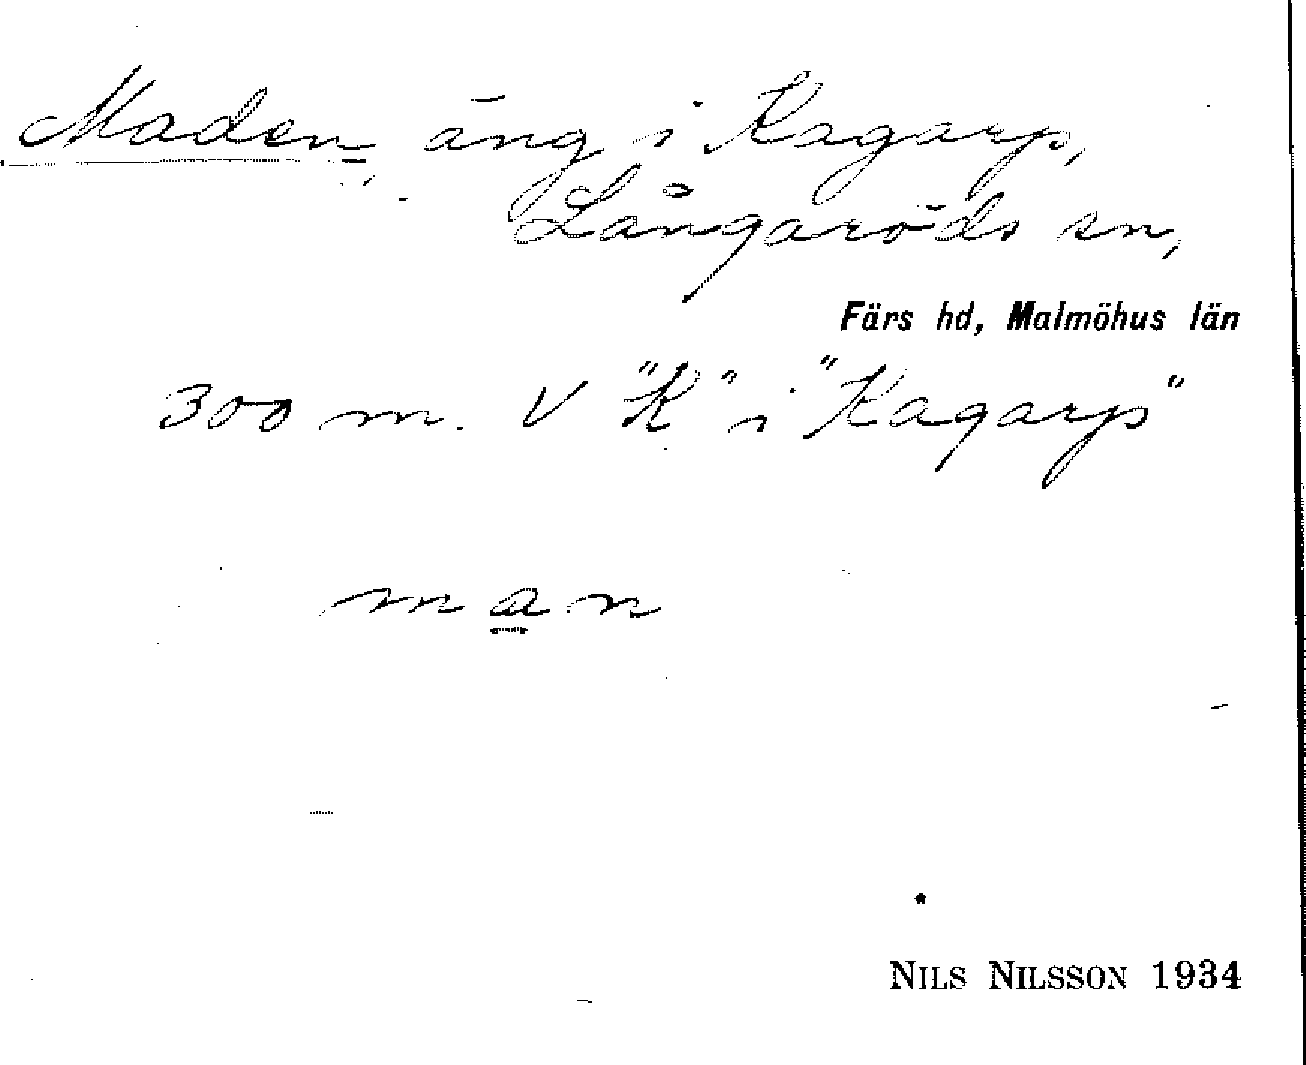 Maden, äng i Kagarp,
Långaröds sn,
Färs hd, Malmöhus län
300 m. V "K" i "Kagarp"
man
NILS NILSSON 1934